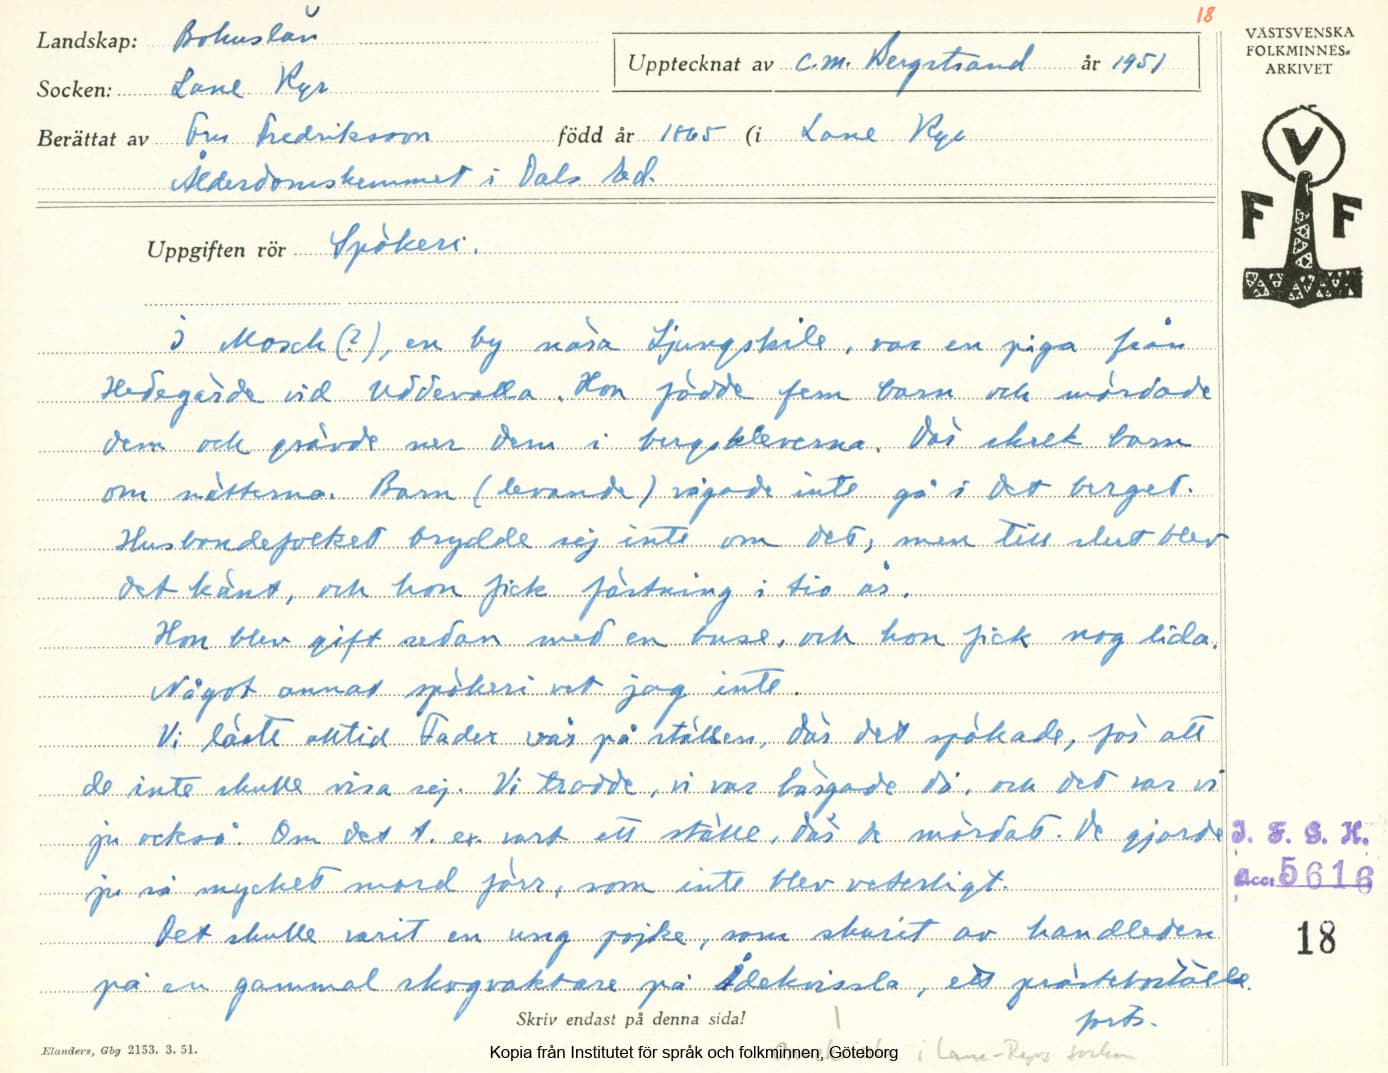 18
Landskap: Bohuslän
Upptecknat av C.M. Bergstrand år 1951
Socken: Lane Ryr
Berättat av Fru Fredriksson född år 1865 (i Lane Ryr
Ålderdomshemmet i Dals Ed.
VÄSTSVENSKA
FOLKMINNES-
ARKIVET
V
F F
Uppgiften rör Spökeri.
I Mosch (?), en by nära Ljungskile, var en piga från
Hedegärde vid Uddevalla. Hon födde fem barn och mördade
dem och grävde ner dem i bergskleverna. Där skrek barn
om nätterna. Barn (levande) vågade inte gå i det berget.
Husbondefolket brydde sej inte om det, men till slut blev
det känt, och hon fick fästning i tio år.
Hon blev gift sedan med en buse, och hon fick nog lida.
Något annat spökeri vet jag inte.
Vi läste alltid Fader vår på ställen, där det spökade, för att
de inte skulle visa sej. Vi trodde, vi var bärgade då, och det var vi
ju också. Om det t. ex. vart ett ställe, där de mördat. De gjorde
ju så mycket mord förr, som inte blev veterligt.
Det skulle varit en ung pojke, som skurit av handleden
på en gammal skogvaktare på Ådekvissla, ett prästeboställe.
forts.
J. F. G. H.
Acc: 5616
18
Skriv endast på denna sida!
i Lane-Ryrs socken
Elanders, Gbg 2153. 3. 51.
Kopia från Institutet för språk och folkminnen, Göteborg